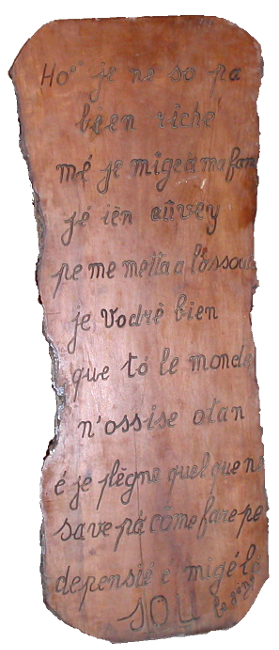 Ho je ne so pa
bien riche
mé je mige a ma fan
jé ièn aûvey
pe me metta a l'assout
je vodrè bien
que tó le monde
n'ossise atan
é je plègne quel que n
save pà côme fare pe
depensié é migé lo
SOU